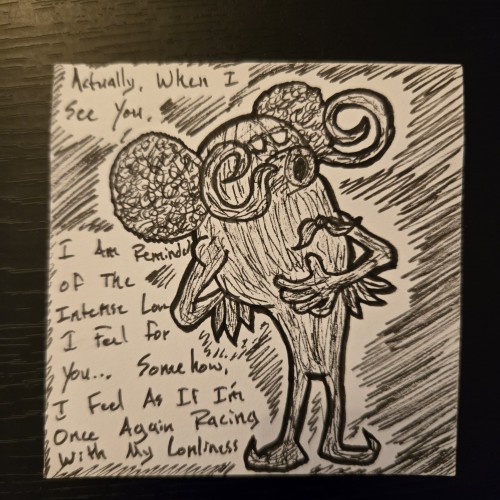 Actually, When I
See You,
I Am Reminded
of The
Intense Love
I Feel for
You... Somehow,
I Feel As If I'm
Once Again Racing
With My Lonliness